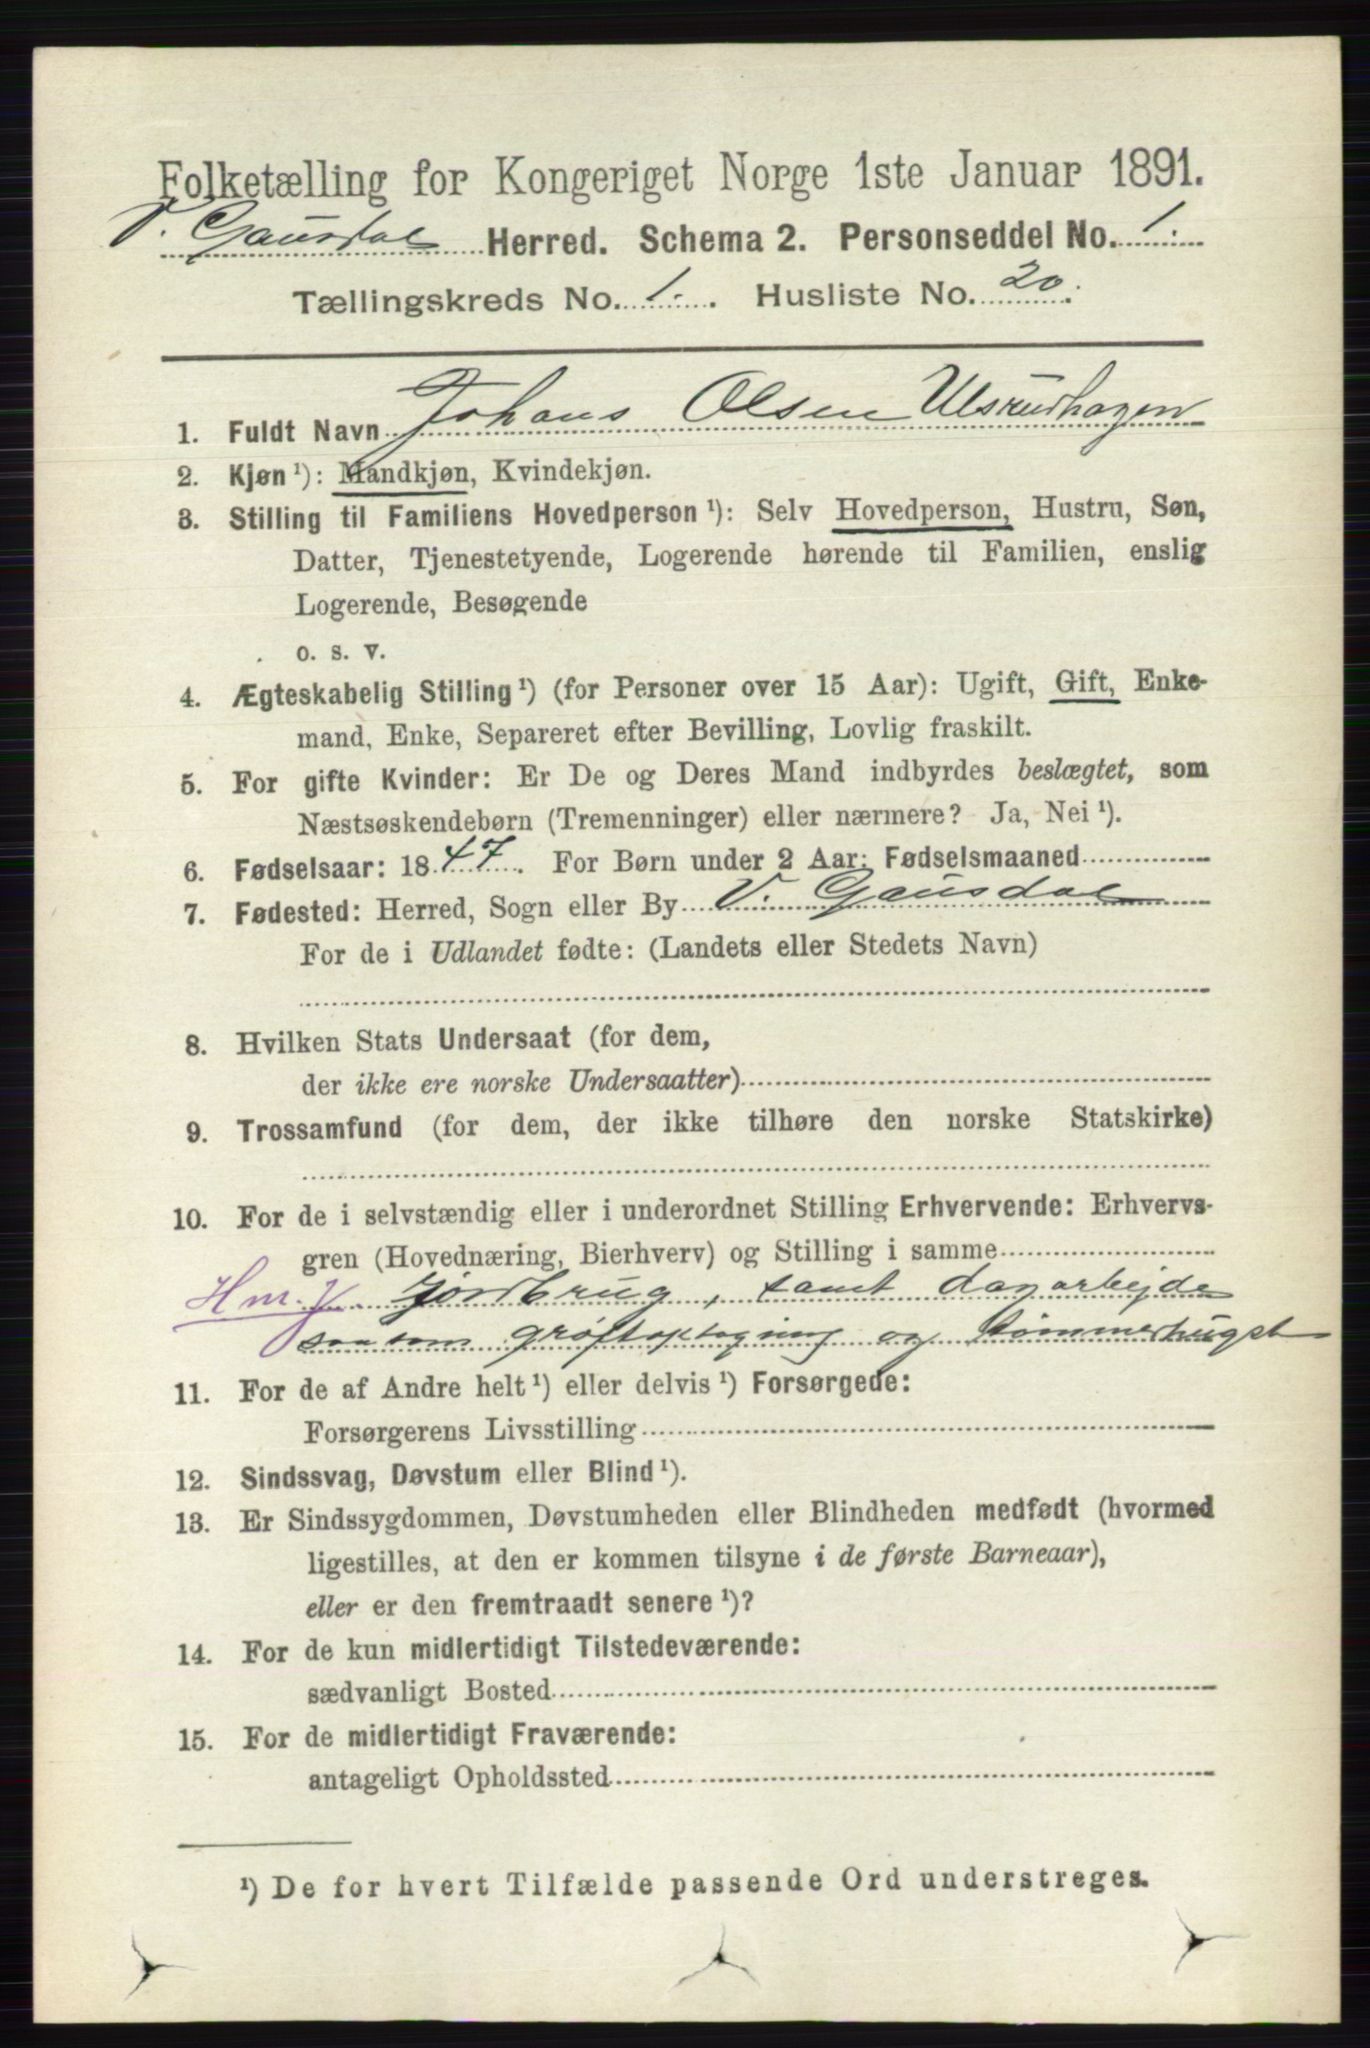 Folketælling for Kongeriget Norge 1ste Januar 1891.
V. Gausdal Herred. Schema 2. Personseddel No. 1.
Tællingskreds No. 1. Husliste No. 20.
1. Fuldt Navn Johans Olsen Ulsrudhagen
2. Kjøn ¹): Mandkjøn, Kvindekjøn.
3. Stilling til Familiens Hovedperson ¹): Selv Hovedperson, Hustru, Søn,
Datter, Tjenestetyende, Logerende hørende til Familien, enslig
Logerende, Besøgende
o. s. v.
4. Ægteskabelig Stilling ¹) (for Personer over 15 Aar): Ugift, Gift, Enke-
mand, Enke, Separeret efter Bevilling, Lovlig fraskilt.
5. For gifte Kvinder: Er De og Deres Mand indbyrdes beslægtet, som
Næstsøskendebørn (Tremenninger) eller nærmere? Ja, Nei ¹).
6. Fødselsaar: 1847. For Børn under 2 Aar: Fødselsmaaned
7. Fødested: Herred, Sogn eller By V. Gausdal
For de i Udlandet fødte: (Landets eller Stedets Navn)
8. Hvilken Stats Undersaat (for dem,
der ikke ere norske Undersaatter)
9. Trossamfund (for dem, der ikke tilhøre den norske Statskirke)
10. For de i selvstændig eller i underordnet Stilling Erhvervende: Erhvervs-
gren (Hovednæring, Bierhverv) og Stilling i samme
Hm. J. Jordbrug, samt dagarbejde
saasom grøftoptagning og tømmerhugst
11. For de af Andre helt ¹) eller delvis ¹) Forsørgede:
Forsørgerens Livsstilling
12. Sindssvag, Døvstum eller Blind ¹).
13. Er Sindssygdommen, Døvstumheden eller Blindheden medfødt (hvormed
ligestilles, at den er kommen tilsyne i de første Barneaar),
eller er den fremtraadt senere ¹)?
14. For de kun midlertidigt Tilstedeværende:
sædvanligt Bosted
15. For de midlertidigt Fraværende:
antageligt Opholdssted
¹) De for hvert Tilfælde passende Ord understreges.